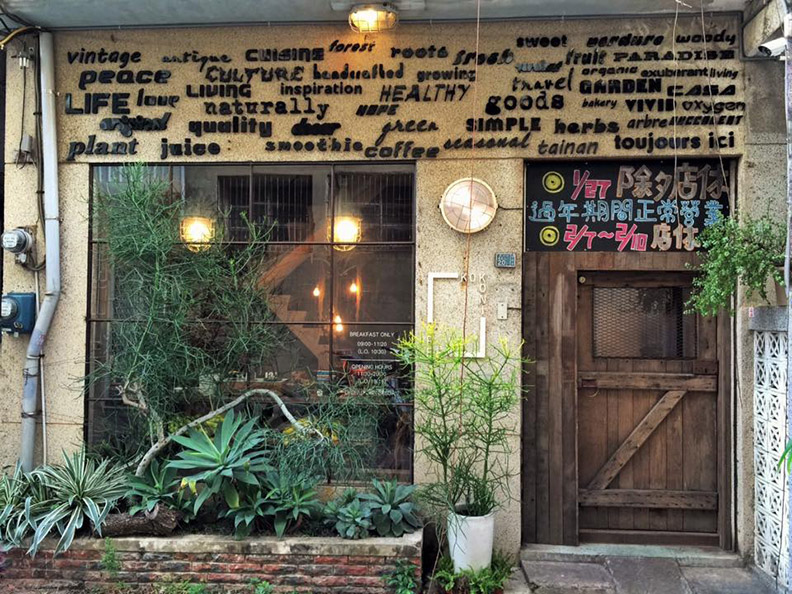 vintage antique CUISINE forest roots fresh sweet verdure woody
peace CULTURE handcrafted growing fruit PARADISE
LIFE love LIVING inspiration HEALTHY travel organic exuberant living
naturally HOPE goods GARDEN CASA
original quality green bakery VIVID oxygen
plant juice smoothie coffee seasonal SIMPLE herbs arbre SUCCULENT
tainan toujours ici
1/27 除夕店休
過年期間正常營業
2/7~2/10 店休
KOKONI
BREAKFAST ONLY
09:00-11:20
(L.O. 10:30)
OPENING HOURS